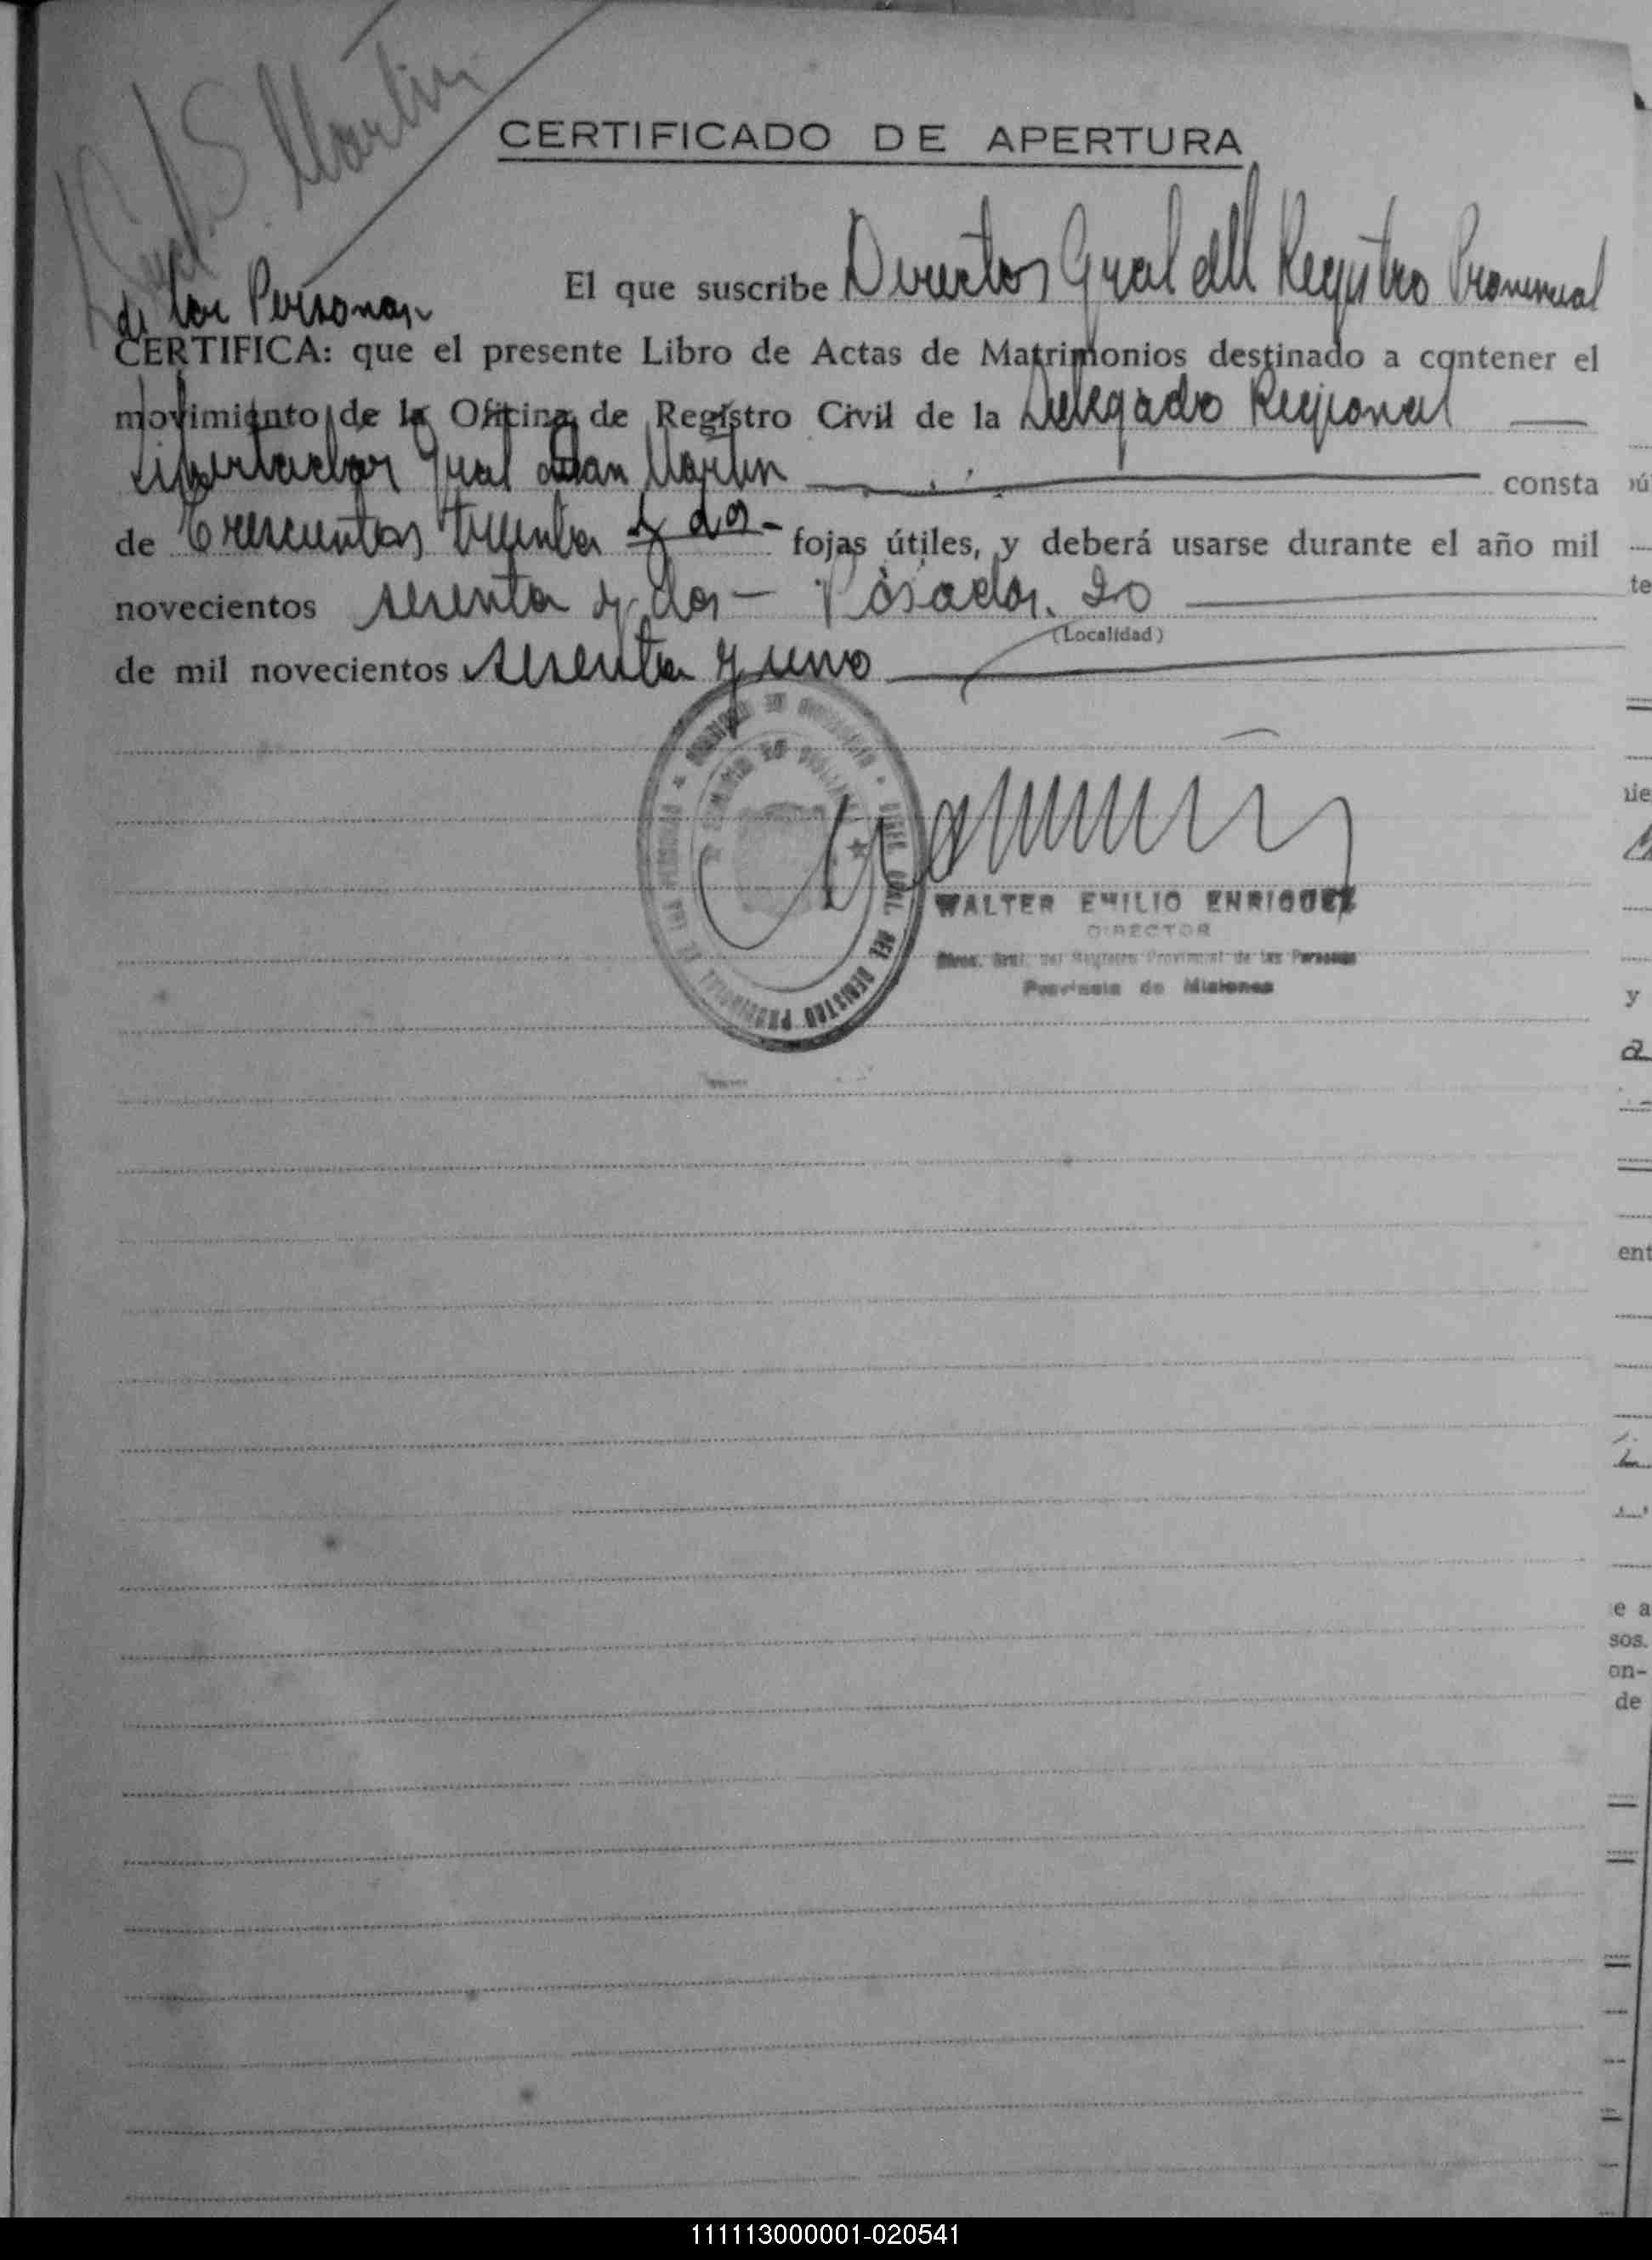 S. Martin
CERTIFICADO DE APERTURA
El que suscribe Director Gral del Registro Provincial
de las Personas
CERTIFICA: que el presente Libro de Actas de Matrimonios destinado a contener el
movimiento de la Oficina de Registro Civil de la Delegado Regional
Libertador Gral San Martin consta
de Trescuentos treinta y dos - fojas útiles, y deberá usarse durante el año mil
novecientos sesenta y dos - Posadas, 20
(Localidad)
de mil novecientos sesenta y uno
WALTER EMILIO ENRIQUEZ
DIRECTOR
Direc. Gral. del Registro Provincial de las Personas
Provincia de Misiones
111113000001-020541